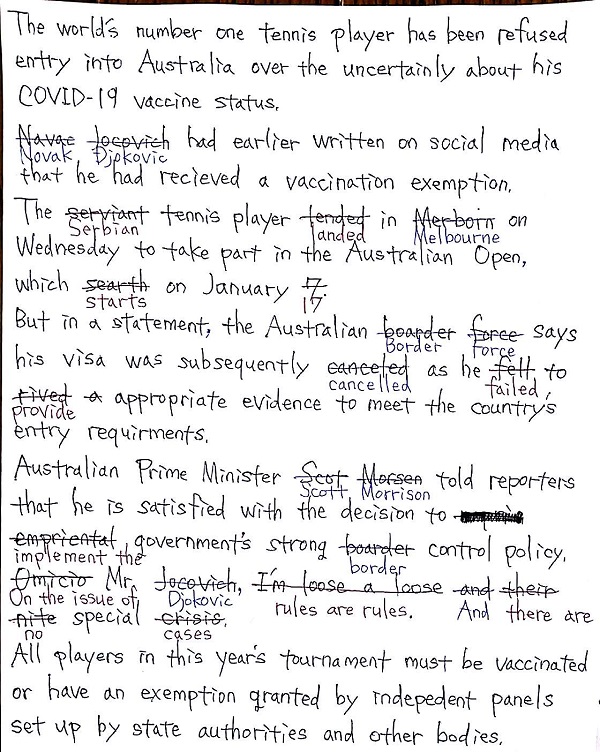 The world's number one tennis player has been refused
entry into Australia over the uncertainly about his
COVID-19 vaccine status.
Navac Jocovich had earlier written on social media
Novak, Djokovic
that he had recieved a vaccination exemption.
The serviant tennis player tended in Merborn on
Serbian landed Melbourne
Wednesday to take part in the Australian Open,
which searth on January 7.
starts 17
But in a statement, the Australian boarder force says
Border Force
his visa was subsequently canceled as he fell to
cancelled failed,
rived a appropriate evidence to meet the country's
provide
entry requirments.
Australian Prime Minister Scot Morsen told reporters
Scott, Morrison
that he is satisfied with the decision to
empriental government's strong boarder control policy.
implement the border
Omicio Mr. Jocovich, I'm loose a loose and their
On the issue of, Djokovic rules are rules. And there are
nite special crisis.
no cases
All players in this year's tournament must be vaccinated
or have an exemption granted by indepedent panels
set up by state authorities and other bodies.